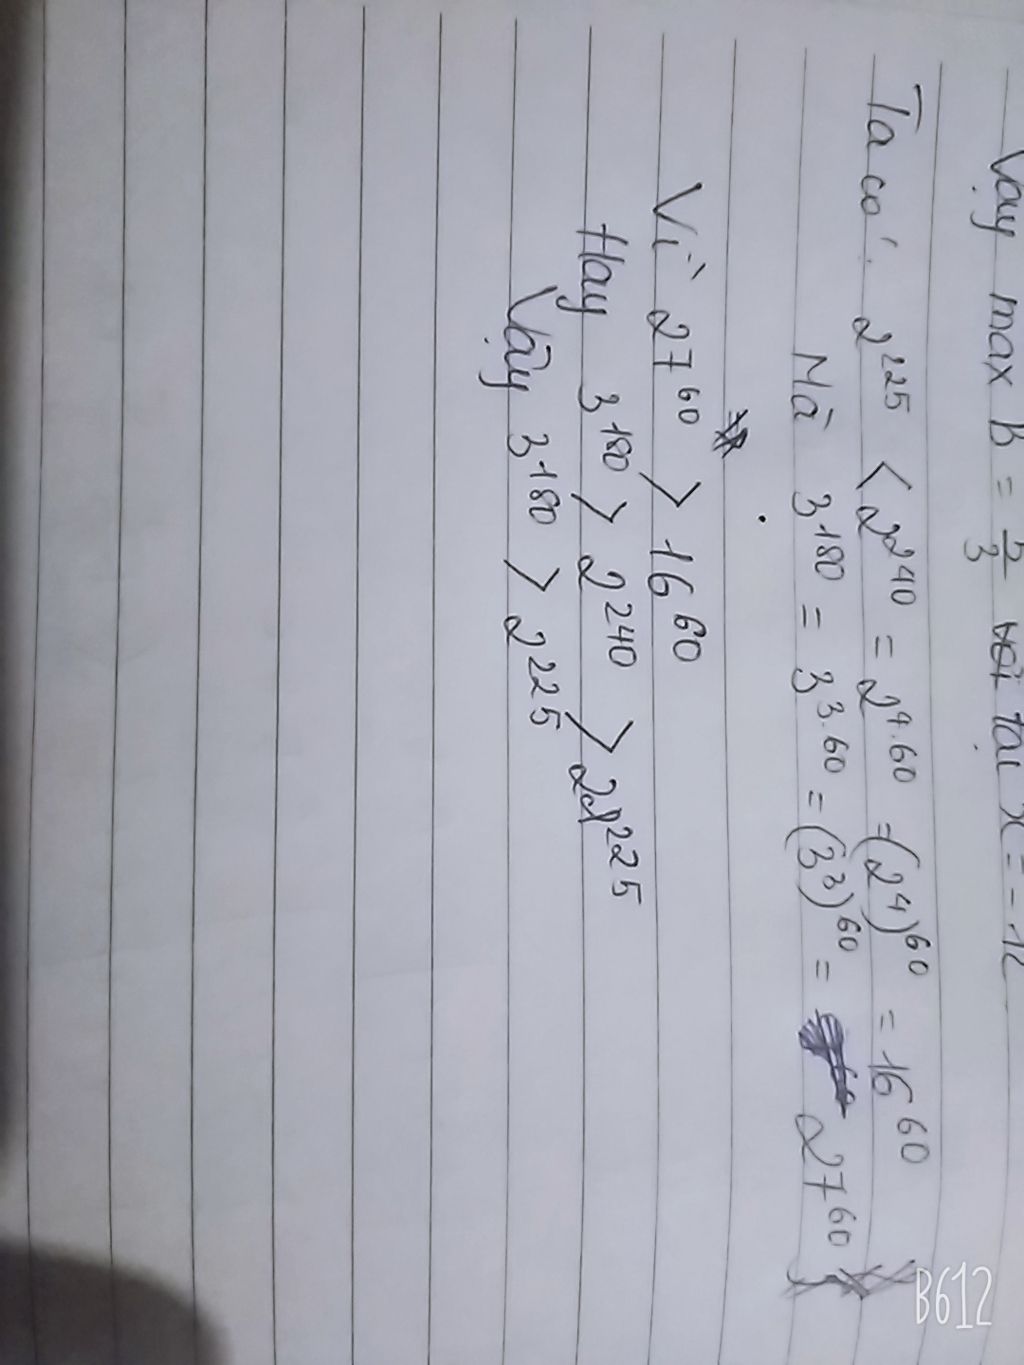 Vậy max B = 5/3 tại x = -12
Ta có: 2^225 < 2^240 = 2^4.60 = (2^4)^60 = 16^60
Mà 3^180 = 3^3.60 = (3^3)^60 = 27^60
Vì 27^60 > 16^60
Hay 3^180 > 2^240 > 2^225
Vậy 3^180 > 2^225
B612